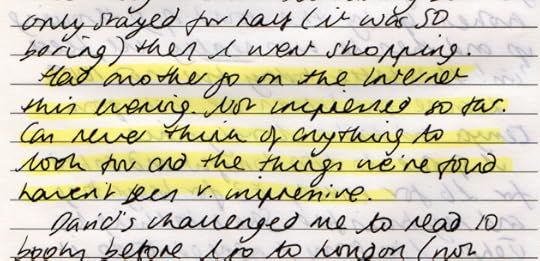 only stayed for half (it was so
boring) then I went shopping.
Had another go on the Internet
this evening. Not impressed so far.
Can never think of anything to
look for and the things we've found
haven't been v. impressive.
David's challenged me to read 10
books before I go to London (not